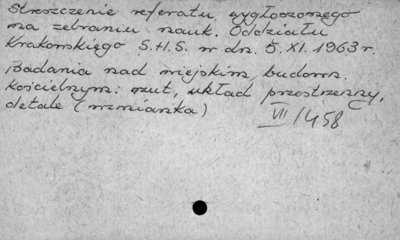 Streszczenie referatu wygłoszonego
na zebraniu nauk. Oddziału
Krakowskiego S.H.S. w dn. 5.XI.1963 r.
Badania nad miejskim budown.
kościelnym: rzut, układ przestrzenny,
detale (wzmianka)
VII/1458